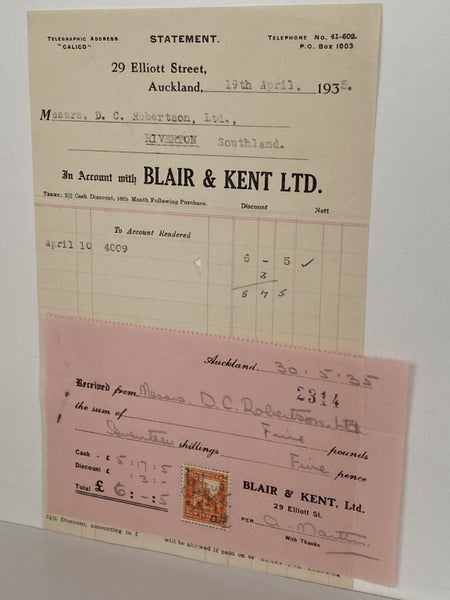 TELEGRAPHIC ADDRESS
"CALICO"
STATEMENT.
TELEPHONE No. 41-602.
P.O. BOX 1003
29 Elliott Street,
Auckland, 19th April. 1935.
Messrs. D. C. Robertson, Ltd.,
RIVERTON Southland.
In Account with BLAIR & KENT LTD.
TERMS: 2½ Cash Discount, 10th Month Following Purchase.
Discount Nett
To Account Rendered
April 10 4009
6 - 5 ✓
3
5 5
Auckland, 30.5.35
2314
Received from Messrs. D.C. Robertson. Ltd
the sum of Five pounds
Seventeen shillings Five pence
Cash - £ 5:17:5
Discount £ :3:-
Total £ 6:-:5
BLAIR & KENT, Ltd.
29 Elliott St.
PER
With Thanks
2½% Discount, amounting to £ will be allowed if paid on or